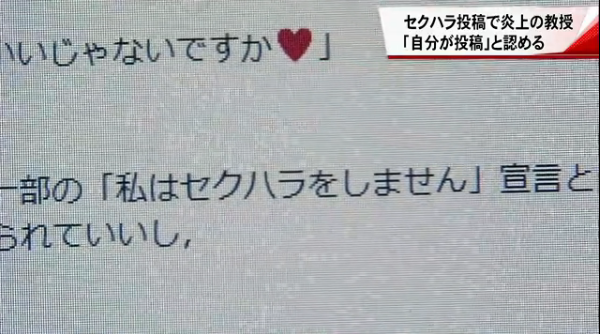 セクハラ投稿で炎上の教授
「自分が投稿」と認める
いいじゃないですか♥」
一部の「私はセクハラをしません」宣言と
られていいし,